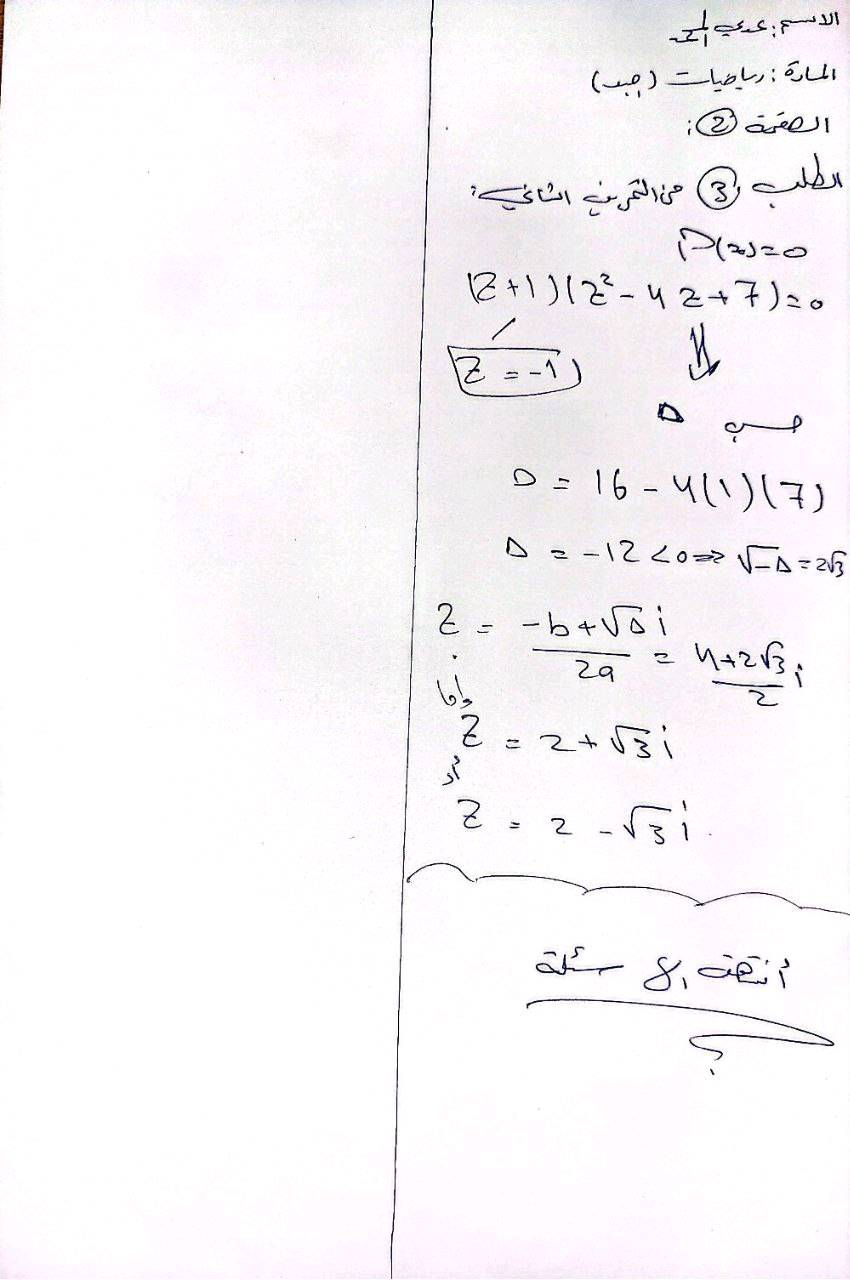 الاسم: عدي
المادة: رياضيات (جبر)
الصفحة ②:
الطلب ③ من التمرين الثاني:
P(z)=0
(z+1)(z²-4z+7)=0
z=-1
حسب Δ
Δ = 16 - 4(1)(7)
Δ = -12 < 0 ⇒ √-Δ = 2√3
z = (-b+√Δ i)/2a = (4+2√3 i)/2
وإما
z = 2 + √3 i
أو
z = 2 - √3 i
أنتهت الأسئلة